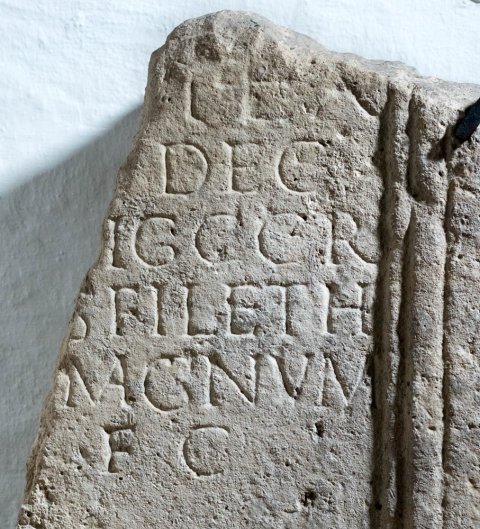 DEC
IGGCR
S FIL ET H
MGNVM
F C